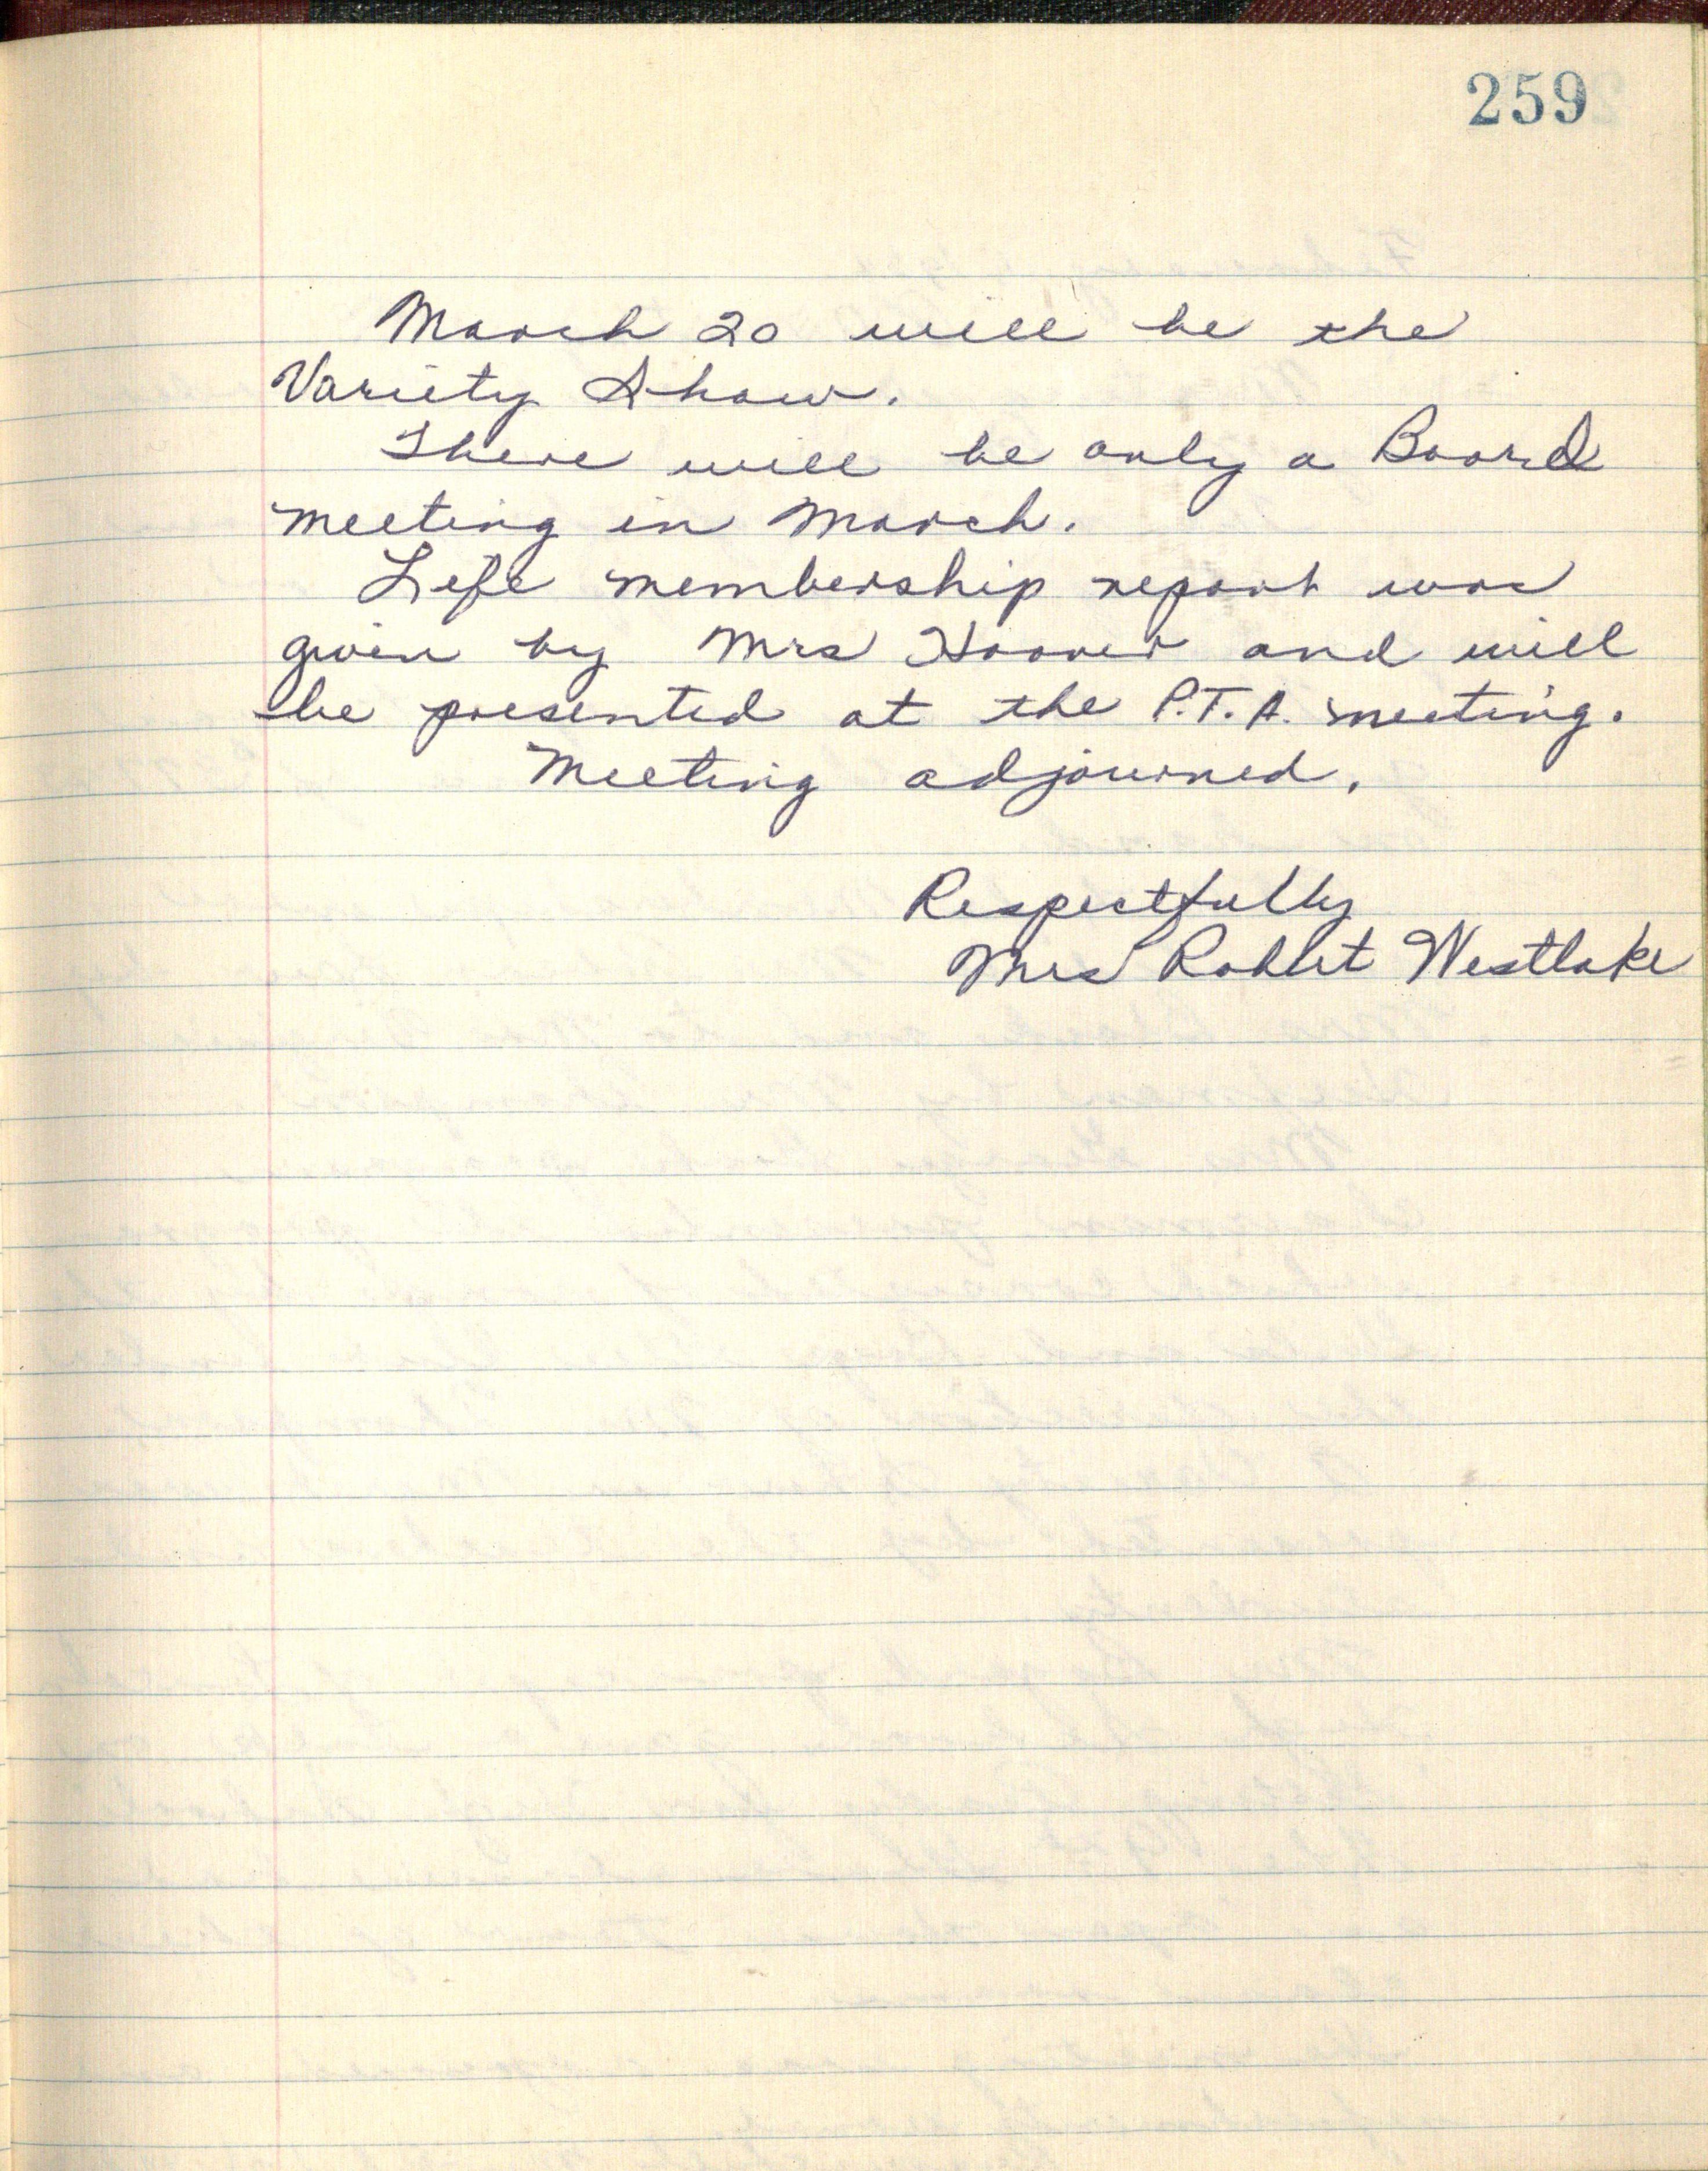 259
March 20 will be the
Variety Show.
There will be only a Board
meeting in March.
Life membership report was
given by Mrs Hoover and will
be presented at the P.T.A. meeting.
Meeting adjourned.
Respectfully
Mrs Robert Westlake